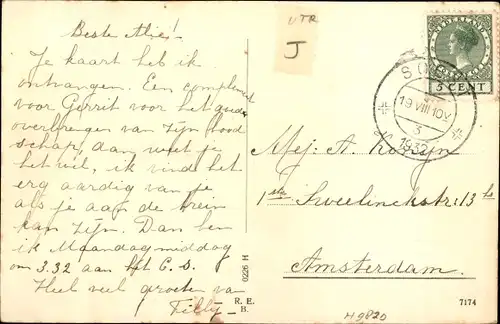 Beste Alie!
Je kaart heb ik
ontvangen. Een compliment
voor Gerrit voor het goede
overbrengen van zijn bood
schap, daar weet je
het uit, ik vind het
erg aardig van je
als je aan de trein
kan zijn. Dan ben
ik Maandagmiddag
om 3.32 aan het C. S.
Heel veel groeten van
Tilly
R. E.
B.
0226 H
UTR
J
NEDERLAND
5 CENT
19 VIII 10V
3
1932
Mej: A.
1ste Sweelinckstr: 13 hs
Amsterdam.
7174
H9820